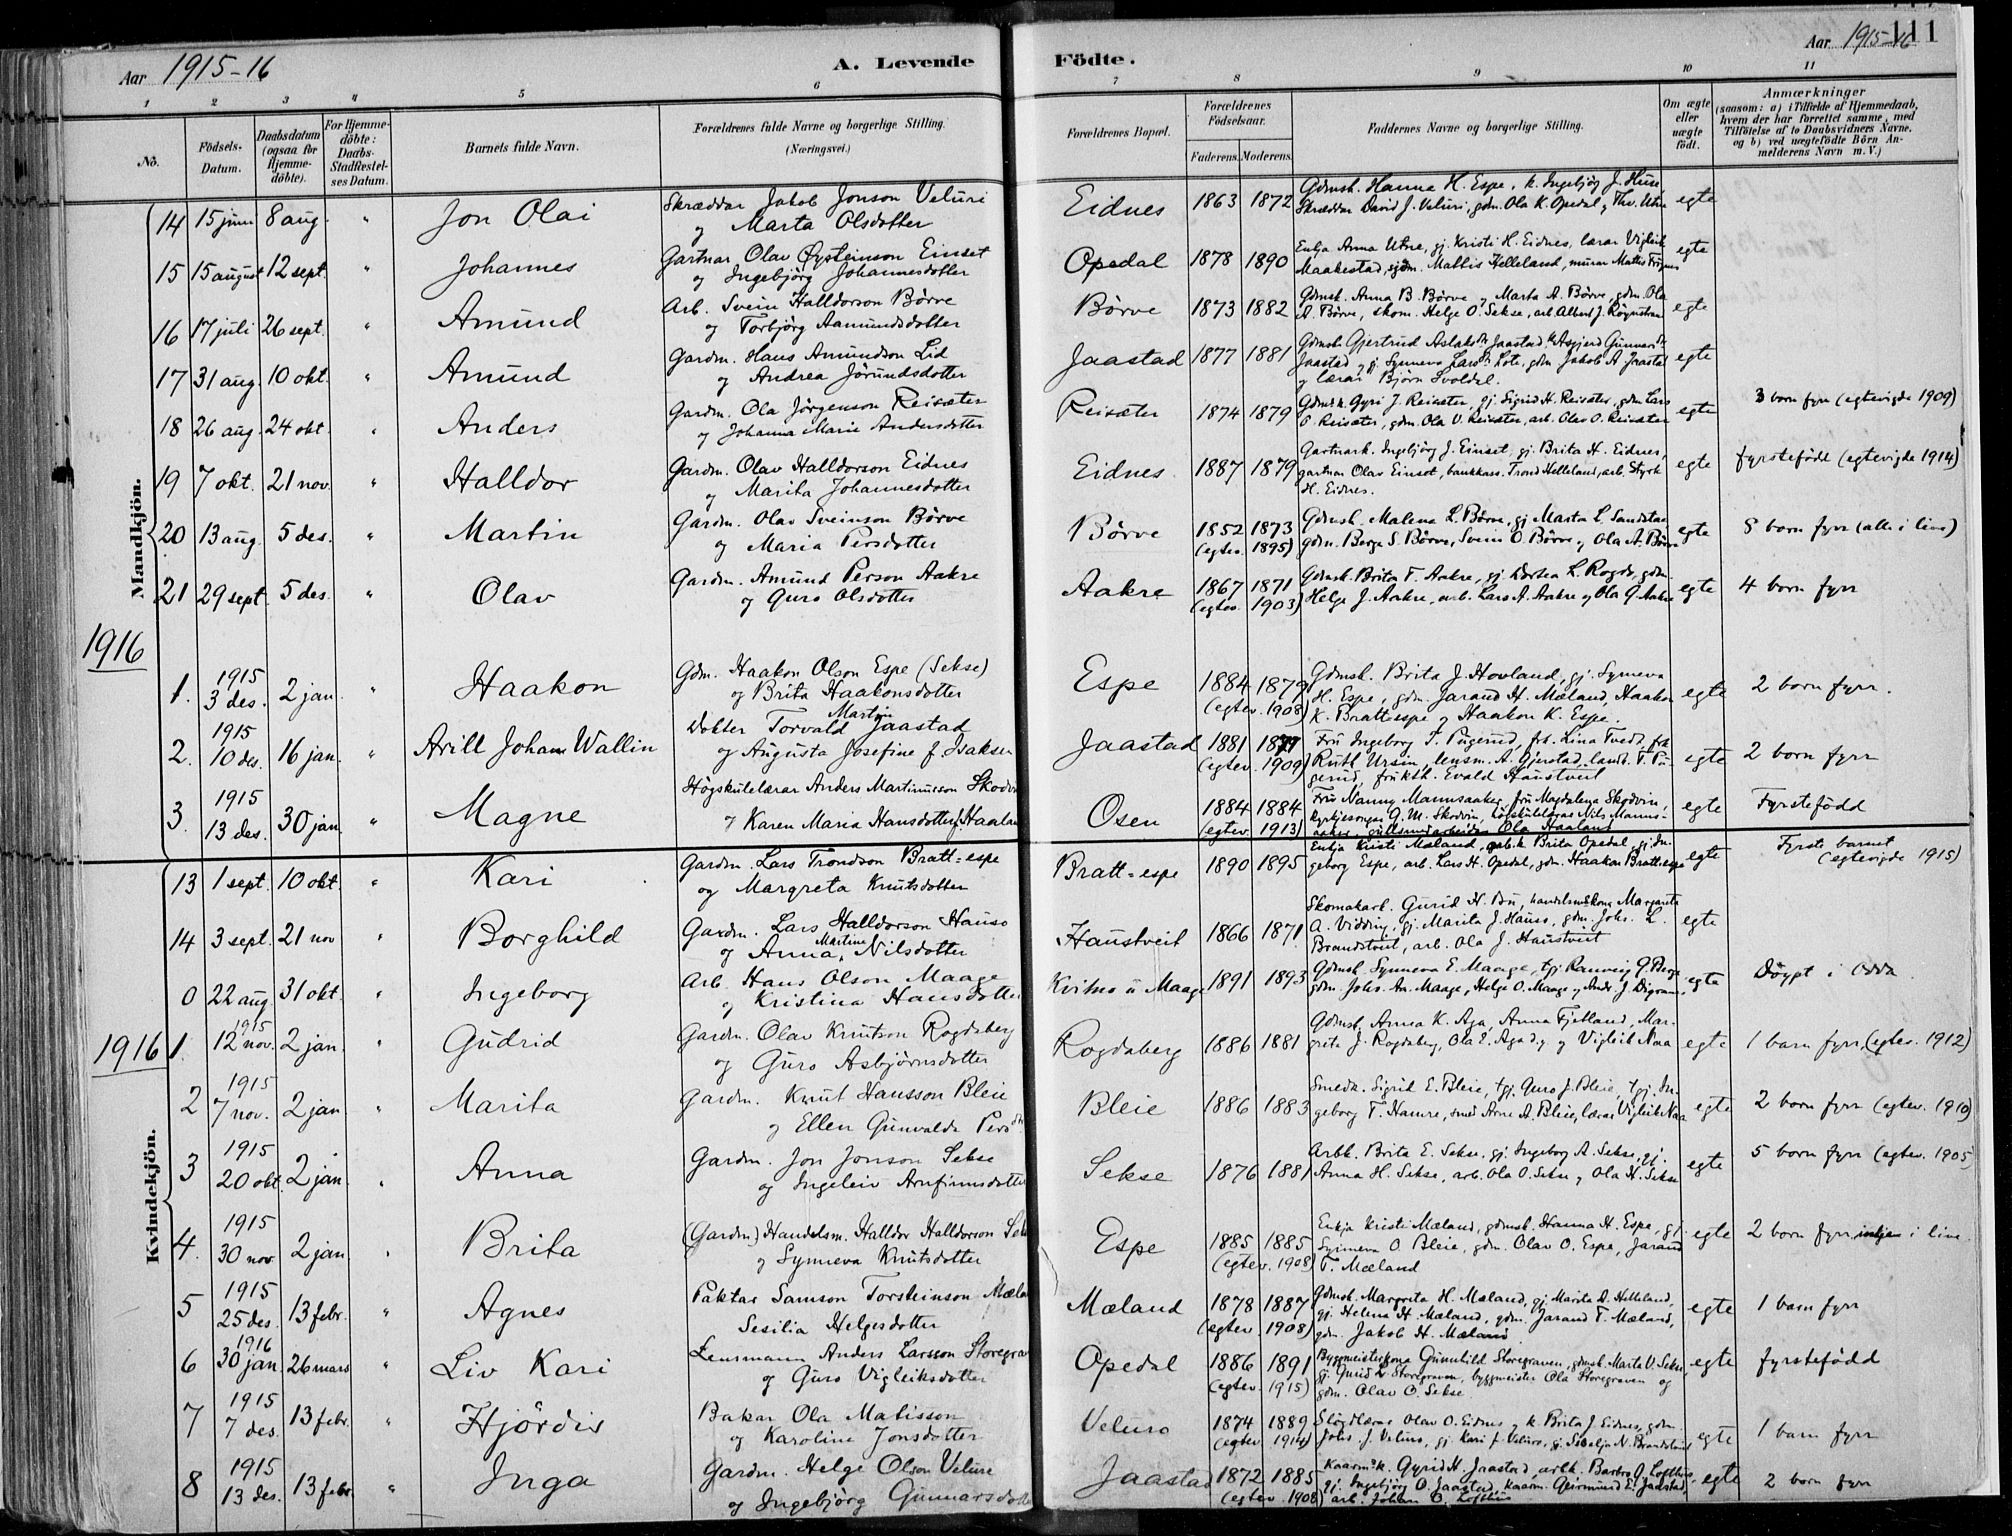 Aar 1915-16
A. Levende
Födte.
Aar 1915-16
111
1 2 3 4 5 6 7 8 9 10 11
No.
Födsels-Datum.
Daabsdatum (ogsaa for Hjemme-döbte).
For Hjemme-döbte: Daabs-Stadfæstel-ses Datum.
Barnets fulde Navn.
Forældrenes fulde Navne og borgerlige Stilling. (Næringsvei.)
Forældrenes Bopæl.
Forældrenes Födselsaar.
Faderens. Moderens.
Faddernes Navne og borgerlige Stilling.
Om ægte eller uægte født.
Anmærkninger
(saasom: a) i Tilfælde af Hjemmedaab, hvem der har forrettet samme, med Tilföielse af to Daabsvidners Navne, og b) ved uægtefödte Börn An-melderens Navn m. V.)
Mandkjön.
14 15 juni 8 aug. " Jon Olai Skræddar Jakob Jonson Veluri og Marta Olsdotter Eidnes 1863 1872 Gdmsk. Hanna H. Espe, k. Ingebjög J. Huse, Skræddar David J. Veluri, gdm. Ola K. Opedal og Thv. Utne egte
15 15 august 12 sept. " Johannes Gartnar Olav Øysteinson Einset og Ingebjörg Johannesdotter Opedal 1878 1890 Enkja Anna Utne, gj. Kristi H. Eidnes, lærar Vigleik Maakestad, gdm. Mattis Helleland, murar Mattis egte
16 17 juli 26 sept. " Amund Arb. Svein Halldorson Börve og Torbjörg Aamundsdotter Börve 1873 1882 Gdmsk. Anna B. Börve og Marta A. Börve, gdm. Ola A. Börve, skom. Helge O. Sekse, arb. Albert J. egte
17 31 aug. 10 okt. " Amund Gardm. Hans Amundson Lid og Andrea Jörundsdotter Jaastad 1877 1881 Gdmsk. Gjertrud Aslaksdr. Jaastad, Asgjerd Gunnarsdr. Jaastad og gj. Synneva Larsdr. Lote, gdm. Jakob A. Jaastad og lærar Björn Svoldal. egte
18 26 aug. 24 okt. " Anders Gardm. Ola Jörgenson Reisæter og Johanna Marie Andersdotter Reisæter 1874 1879 Gdmsk. Gyri J. Reisæter, gj. Sigrid H. Reisæter, gdm. Lars O. Reisæter, gdm. Ola V. Reisæter, arb. Olav O. Reisæter egte 3 born fyrr (egtevigde 1909)
19 7 okt. 21 nov. " Halldor Gardm. Olav Halldorson Eidnes og Marita Johannesdotter Eidnes 1887 1879 Gartnark. Ingebjörg J. Einset, gj. Brita H. Eidnes, gartnar Olav Einset, bankkass. Trond Helleland, arb. Styrk H. Eidnes. egte fyrstefödt (egtevigde 1914)
20 13 aug. 5 des. " Martin Gardm. Olav Sveinson Börve og Maria Persdotter Börve 1852 1873 (egtev. 1895) Gdmsk. Malena L. Börve, gj. Marta L. Sandstø, gdm. Borge S. Börve, Svein O. Börve og Ola A. Börve egte 8 born fyrr (alle i live)
21 29 sept. 5 des. " Olav Gardm. Amund Person Aakre og Guro Olsdotter Aakre 1867 1871 (egtev. 1903) Gdmsk. Brita T. Aakre, gj. Dortea L. Rogde, gdm. Helge J. Aakre, arb. Lars A. Aakre og Ola G. Aakre egte 4 born fyrr
1916
1. 1915 3 des. 2 jan. " Haakon Gdm. Haakon Olson Espe (Sekse) og Brita Haakonsdotter Espe 1884 1879 (egtev. 1908) Gdmsk. Brita J. Hovland, gj. Synneva H. Espe, gdm. Jarand H. Mæland, Haakon K. Brattespe og Haakon K. Espe. egte 2 born fyrr.
2. 1915 10 des. 16 jan. " Arill Johan Wallin Dokter Torvald Martin Jaastad og Augusta Josefine f. Isaksen Jaastad 1881 1877 (egtev. 1909) Fru Ingeborg T. Pugerud, frk. Lina Tvedt, frk. Ruth Ursin, lensm. A. Gjerstad, landh. T. Pugerud, frukth. Evald Haustveit egte 2 born fyrr
3. 1915 13 des. 30 jan. " Magne Högskulelærar Anders Martinusson Skodvin og Karen Maria Hansdotter f. Haaland Osen 1884 1884 (egtev. 1913) Fru Nanny Mannsaaker, fru Magdalena Skodvin, kyrkjesongar G. M. Skodvin, högskulelærar Nils Mannsaaker, gullsmedarbeidar Ola Haaland egte Fyrstefödd
Kvindekjön.
13 1 sept. 10 okt. " Kari Gardm. Lars Trondson Bratt=espe og Margreta Knutsdotter Bratt=espe 1890 1895 Enkja Kristi Mæland, arb.k. Brita Opedal, gj. Ingeborg Espe, arb. Lars H. Opedal, gdm. Haakon Brattespe egte Fyrste barnet (egtevigde 1915)
14 3 sept. 21 nov " Borghild Gardm. Lars Halldorson Hauso og Anna Martine Nilsdotter Haustveit 1866 1871 Skomakark. Gurid H. Bu, handelsmskona Margareta A. Vidding, gj. Marita J. Hauso, gdm. Johs. L. Brandstveit, arb. Ola J. Haustveit egte
0 22 aug. 31 okt. " Ingeborg Arb. Hans Olson Maage og Kristina Hansdotter Kvitno u Maage 1891 1893 Gdmsk. Synneva E. Maage, tj. Ranveig G. Berge, gdm. Johs. An. Maage, Helge O. Maage og Andr. J. Digranes. egte Döypt i Odda
1916 1. 1915 12 nov. 2 jan. " Gudrid Gardm. Olav Knutson Rogdaberg og Guro Asbjörnsdotter Rogdaberg 1886 1881 Gdmsk. Anna K. Aga, Anna Fjetland, Margrita J. Rogdaberg, Ola E. Aga d.y. og Vigleik Naa egte 1 barn fyrr, (egtev. 1912)
2 1915 7 nov. 2 jan " Marita Gardm. Knut Hansson Bleie og Ellen Gunvalda Persdr. Bleie 1886 1883 Smedk. Sigrid E. Bleie, tgj. Guro J. Bleie, tgj. Ingeborg T. Hamre, smed Arne A. Bleie, lærar Vigleik Naa egte 2 born fyrr (egtev. 1910)
3 1915 20 okt. 2 jan. " Anna Gardm. Jon Jonson Sekse og Ingeleiv Arnfinnsdotter Sekse 1876 1881 Arbk. Brita E. Sekse, gj. Ingeborg A. Sekse, gj. Anna H. Sekse, arb. Ola O. Sekse og Ola H. Sekse egte 5 born fyrr (egtev. 1905)
4. 1915 30 nov. 2 jan " Brita (Gardm.) Handelsm. Halldor Halldorson Sekse og Synneva Knutsdotter Espe 1885 1885 (egtev. 1908) Enkja Kristi Mæland, gdmsk. Hanna H. Espe, gj. Synneva O. Bleie, gdm. Olav O. Espe, Jarand T. Mæland egte 2 born fyrr, ingen i live.
5 1915 25 des. 13 febr. " Agnes Paktar Samson Torsteinson Mæland Sesilia Helgesdotter Mæland 1878 1887 (egtev. 1908) Gdmsk. Margreta H. Mæland, gj. Marita D. Helleland, gj. Helena H. Mæland, gdm. Jarand T. Mæland, gdm. Jakob H. Mæland egte 1 barn fyrr
6 1916 30 jan. 26 mars " Liv Kari Lensmann Anders Larsson Storegraven og Guro Vigleiksdotter Opedal 1886 1891 (egtev. 1915) Byggmeisterkona Gunnhild Storegraven, gdmsk. Marta V. Sekse, gj. Gurid L. Storegraven, byggmeister Ola Storegraven og gdm. Olav O. Sekse. egte fyrstefödd
7 1915 7 des. 13 febr. " Hjördis Bakar Ola Matisson og Karoline Jonsdotter Veluro 1874 1889 (egtev. 1914) Slöjdlærar Olav O. Eidnes og k. Brita J. Eidnes, gdm. Johs. J. Veluro, gj. Kari J. Veluro, gj. N. egte 1 barn fyrr
8 1915 13 des. 13 febr. " Inga Gardm. Helge Olson Velure og Ingebjörg Gunnarsdotter Jaastad 1872 1885 (egtev. 1908) Kaarm.k. Gyrid H. Jaastad, arbk. Barbro O. Lofthus, gj. Ingebjörg O. Jaastad, kaarm. Geirmund E. Jaastad, arb. Johan O. Lofthus egte 2 born fyrr